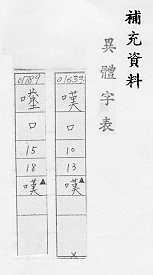 補充資料
異體字表
01633
嘆
口
10
13
嘆▲
×
01789
口
15
18
嘆▲